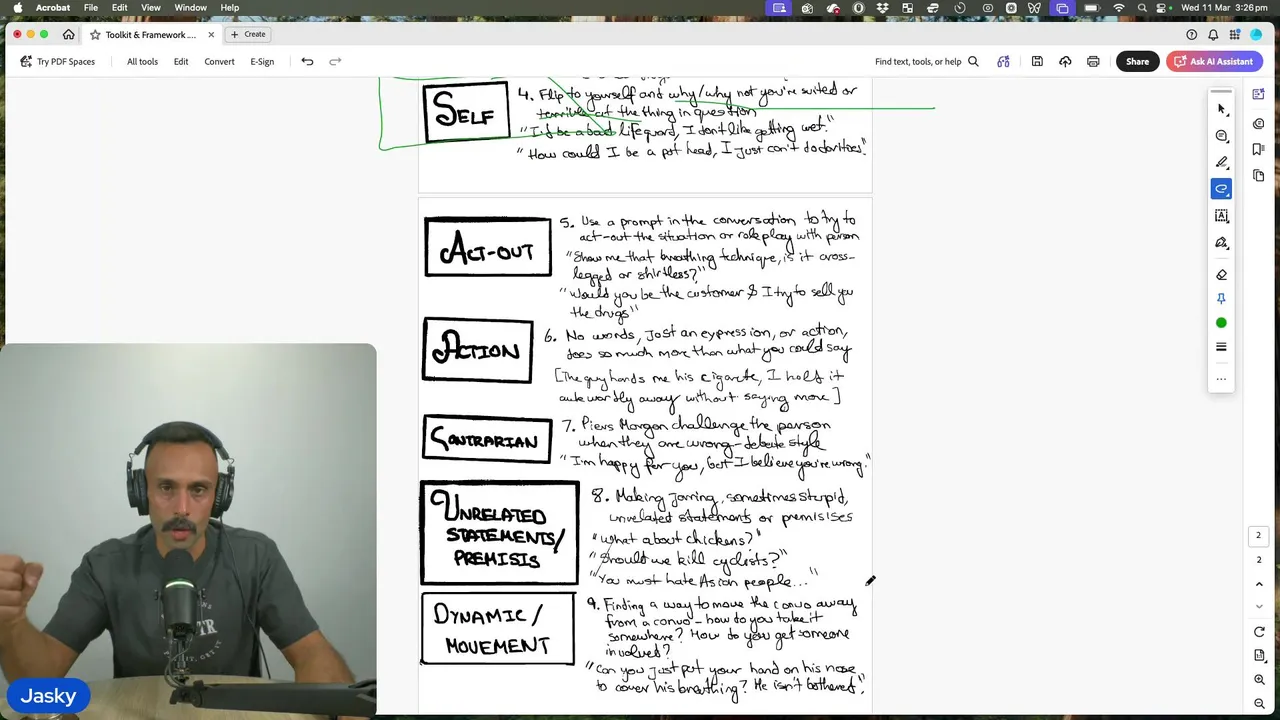 Acrobat File Edit View Window Help
Wed 11 Mar 3:26 pm
Toolkit & Framework ....
Create
Try PDF Spaces All tools Edit Convert E-Sign
Find text, tools, or help Share Ask AI Assistant
SELF
4. Flip to yourself and why/why not you're suited or
terrible at the thing in question
"I'd be a bad lifeguard, I don't like getting wet."
"How could I be a pot head, I just can't do dorbities."
ACT-OUT
5. Use a prompt in the conversation to try to
act-out the situation or roleplay with person
"Show me that breathing technique, is it cross-
legged or shirtless?"
"Would you be the customer & I try to sell you
the drugs"
ACTION
6. No words, just an expression, or action,
does so much more than what you could say
[The guy hands me his cigarte, I hold it
awkwardly away without saying more]
CONTRARIAN
7. Piers Morgan challenge the person
when they are wrong-debate style
"I'm happy for you, but I believe you're wrong."
UNRELATED
STATEMENTS/
PREMISIS
8. Making jarring, sometimes stupid,
unrelated statements or premisises
"What about chickens?"
"Should we kill cyclists?"
"You must hate Asian people..."
DYNAMIC/
MOVEMENT
9. Finding a way to move the convo away
from a convo - how do you take it
somewhere? How do you get someone
involved?
"Can you just put your hand on his nose
to cover his breathing? He isn't bothered."
2
2
Jasky